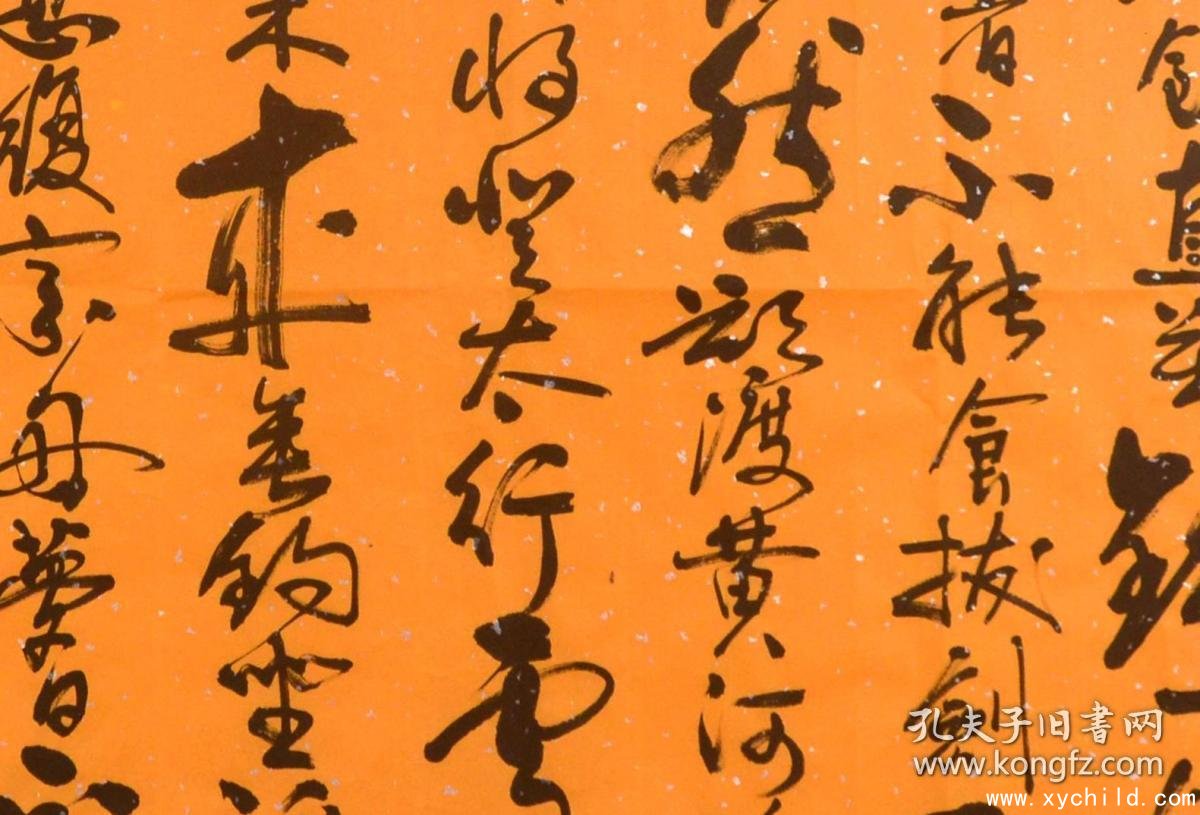 直萬錢
不能食拔劍
然欲渡黄河
将登太行雪
來垂釣坐
忽復乘舟夢日
孔夫子旧书网
www.kongfz.com
www.xychild.com